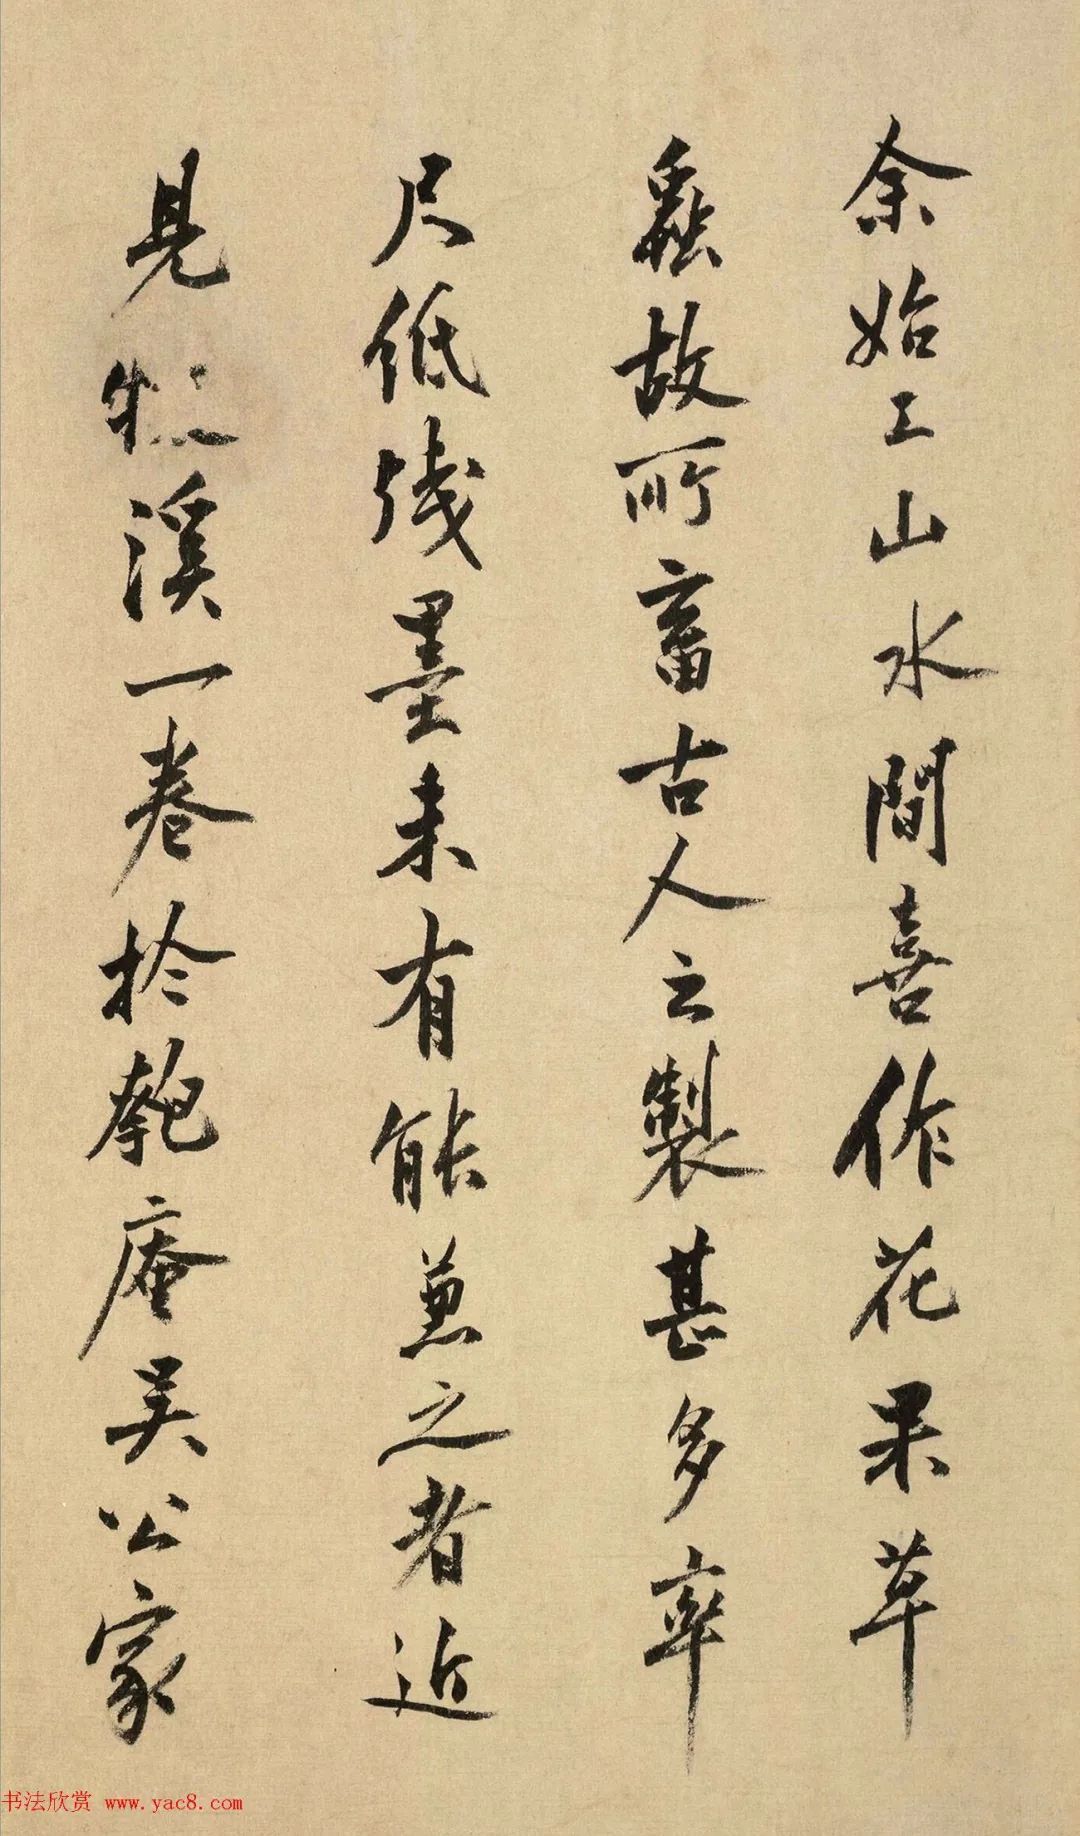 余始工山水間喜作花果草
蟲故所畜古人之製甚多率
尺低殘墨未有能兼之者近
見牧溪一卷於匏庵吴公家
书法欣赏 www.yac8.com